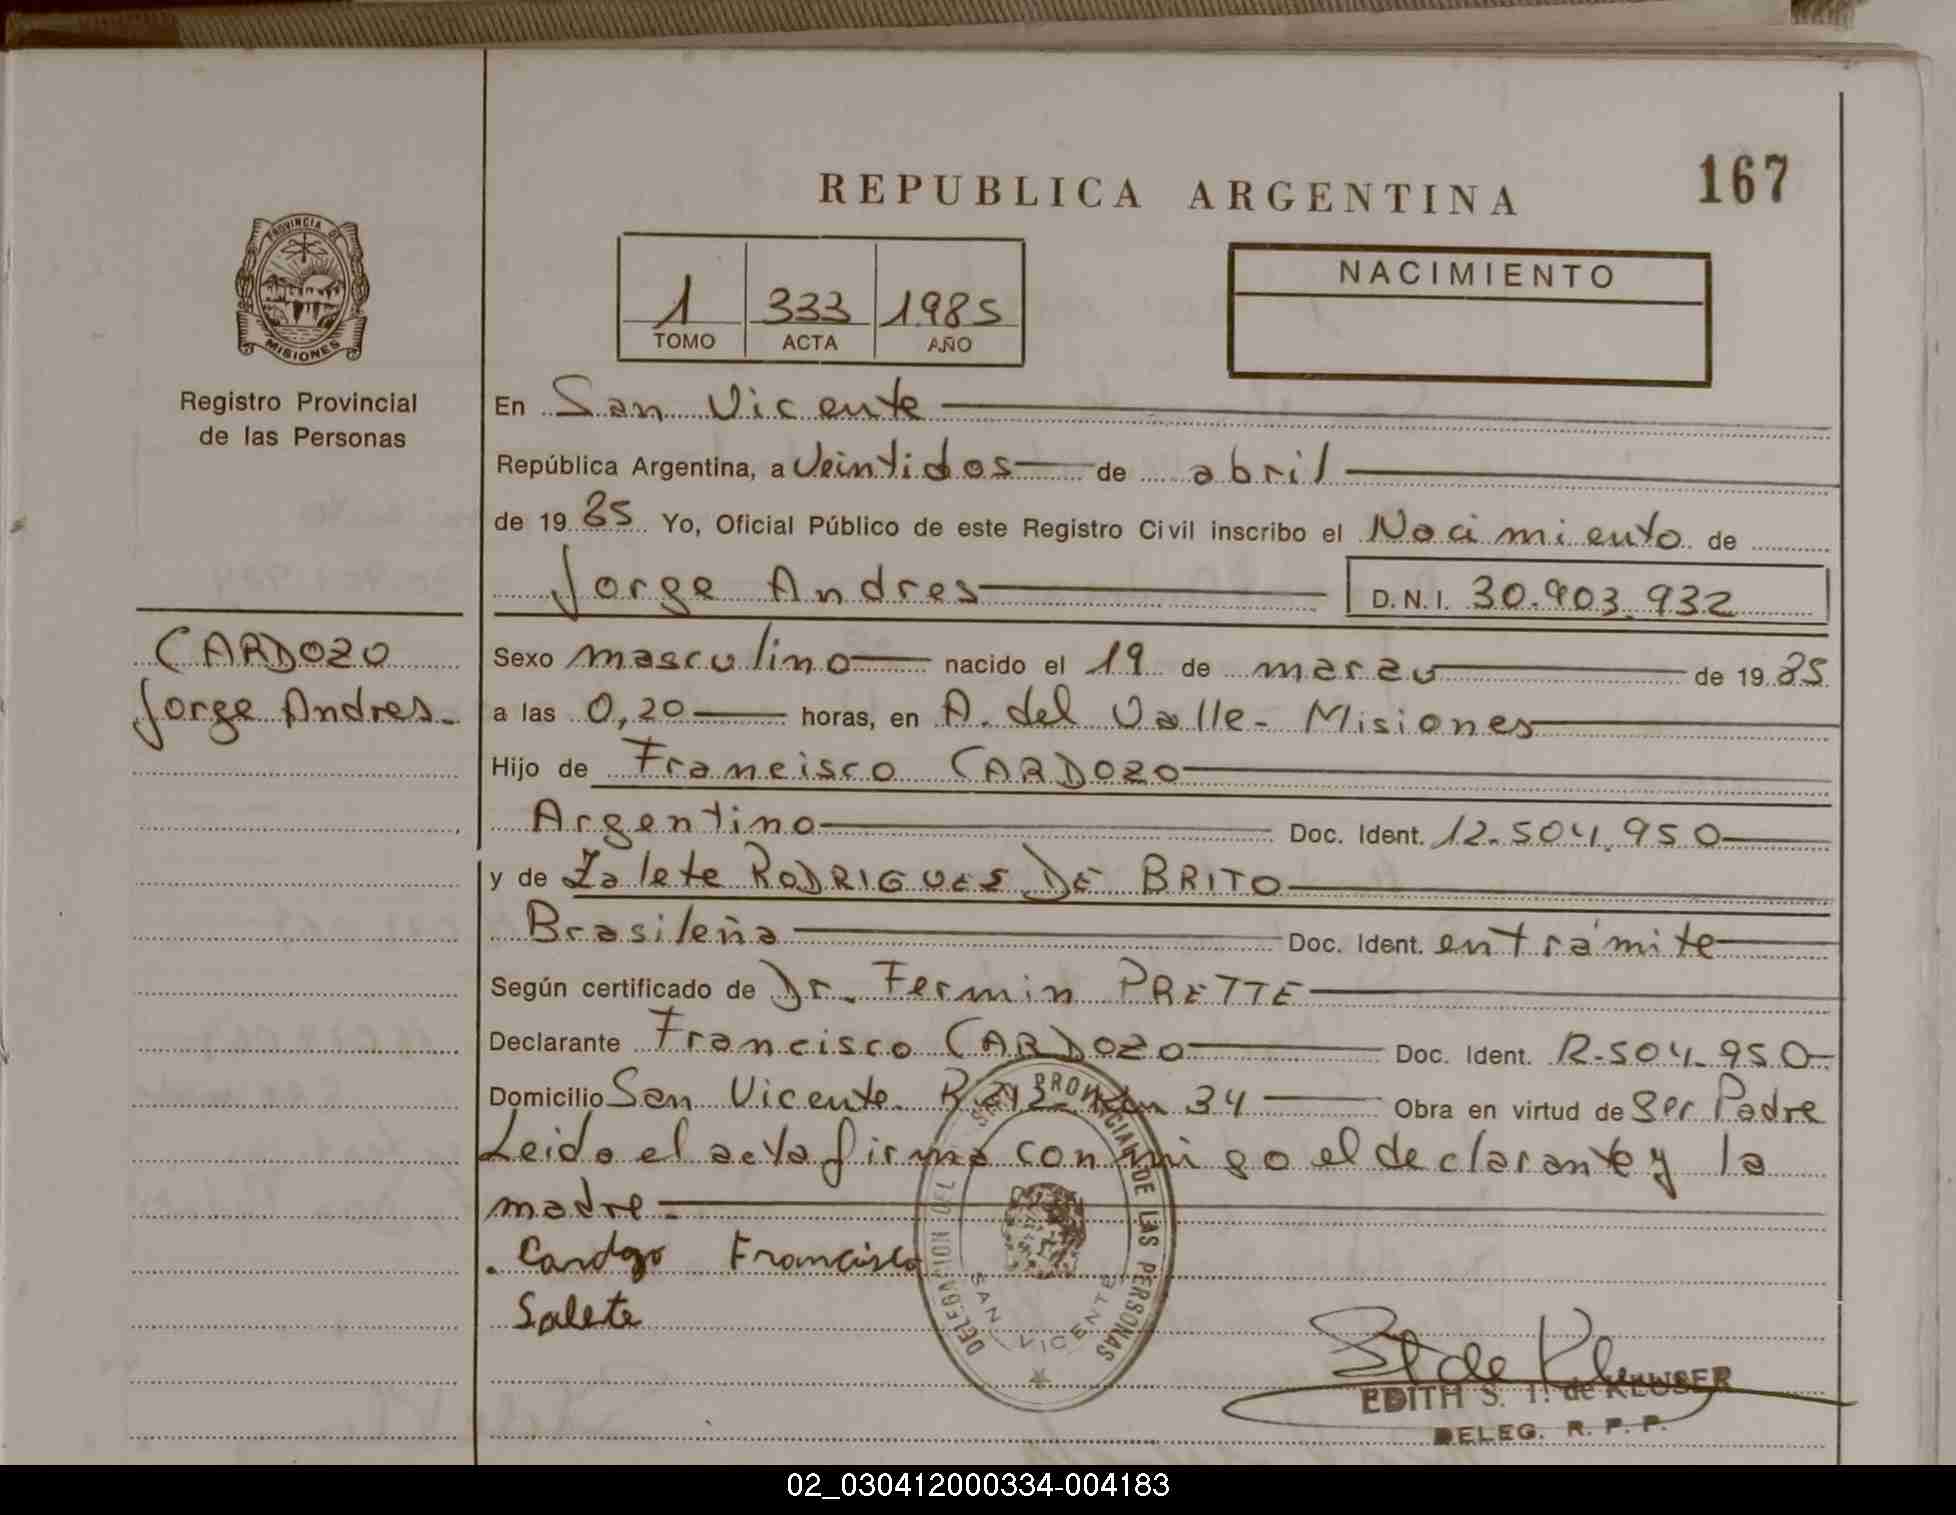 REPUBLICA ARGENTINA
167
PROVINCIA DE
MISIONES
Registro Provincial
de las Personas
1 333 1985
TOMO ACTA AÑO
NACIMIENTO
En San Vicente
República Argentina, a Veintidos de abril
de 19 85 Yo, Oficial Público de este Registro Civil inscribo el Nacimiento de
Jorge Andres D.N.I. 30.903.932
CARDOZO
Jorge Andres.
Sexo masculino nacido el 19 de marzo de 19 85
a las 0,20 horas, en A. del Valle - Misiones
Hijo de Francisco CARDOZO
Argentino Doc. Ident. 12.504.950
y de Zalete RODRIGUES DE BRITO
Brasileña Doc. Ident. en trámite
Según certificado de Dr. Fermin PRETTE
Declarante Francisco CARDOZO Doc. Ident. 12.504.950
Domicilio San Vicente R 213 Km 34 Obra en virtud de Ser Padre
Leido el acta firma con migo el declarante y la
madre
Cardozo Francisco
Salete
DELEGACION DEL PROVINCIAL DE LAS PERSONAS
SAN VICENTE
EDITH S. T. de KLUSER
DELEG. R. P. P.
02_030412000334-004183